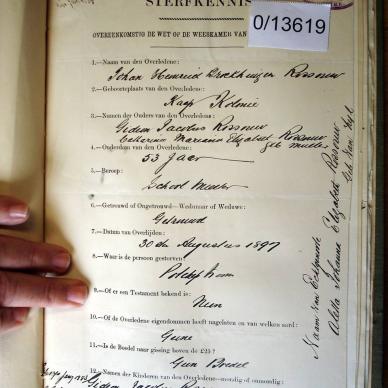 STERFKENNIS
0/13619
OVEREENKOMSTIG DE WET OP DE WEESKAMER VAN
1.—Naam van den Overledene:
Johan Hemrich Broekhuizen Rossouw
2.—Geboorteplaats van den Overledene:
Kaap Kolonie
3.—Namen der Ouders van den Overledene:
Gideon Jacobus Rossouw
Catharina Mariana Elizabeth Rossouw
geb Muller
4.—Ouderdom van den Overledene:
53 Jaar
5.—Beroep:
School Meester
6.—Getrouwd of Ongetrouwd—Weduwnaar of Weduwe:
Getrouwd
7.—Datum van Overlijden:
30 de Augustus 1897
8.—Waar is de persoon gestorven
9.—Of er een Testament bekend is:
Neen
10.—Of de Overledene eigendommen heeft nagelaten en van welken aard:
Geene
11.—Is de Boedel naar gissing boven de £25?:
Geen Boedel
12.—Namen der Kinderen van den Overledene—mondig of onmondig:
Gideon Jacobus
Naam van Echtgenoote
Aletta Johanna Elizabeth Rossouw
Geb. van